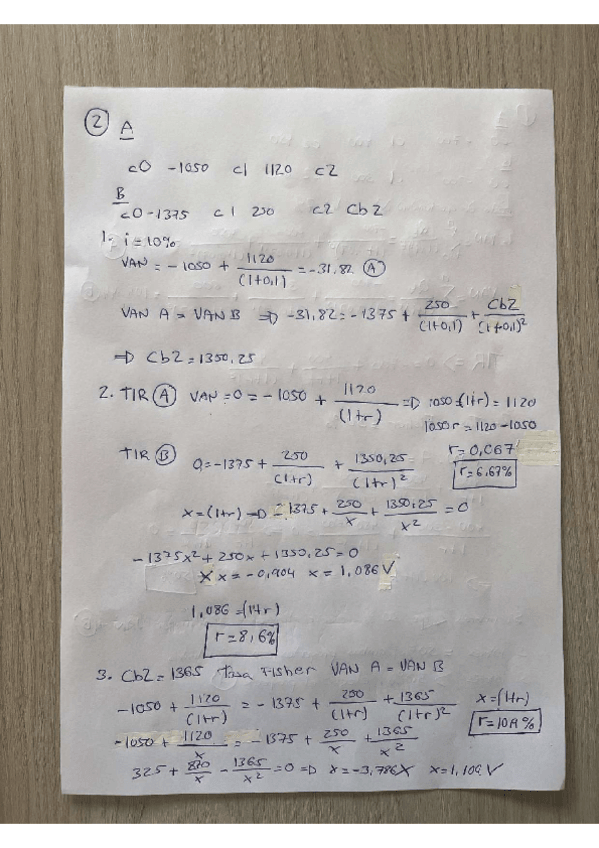 2 A
c0 -1050 c1 1120 c2
B
c0 -1375 c1 250 c2 Cb2
1. i = 10%
VAN = -1050 + 1120/(1+0,1) = -31,82 A
VAN A = VAN B ⇒ -31,82 = -1375 + 250/(1+0,1) + Cb2/(1+0,1)²
⇒ Cb2 = 1350,25
2. TIR A VAN = 0 = -1050 + 1120/(1+r) ⇒ 1050·(1+r) = 1120
1050r = 1120 - 1050
r = 0,067
r = 6,67%
TIR B 0 = -1375 + 250/(1+r) + 1350,25/(1+r)²
x = (1+r) ⇒ -1375 + 250/x + 1350,25/x² = 0
-1375x² + 250x + 1350,25 = 0
X x = -0,904 x = 1,086 √
1,086 = (1+r)
r = 8,6%
3. Cb2 = 1365 Tasa Fisher VAN A = VAN B
-1050 + 1120/(1+r) = -1375 + 250/(1+r) + 1365/(1+r)² x = (1+r)
-1050 + 1120/x = -1375 + 250/x + 1365/x²
325 + 870/x - 1365/x² = 0 ⇒ x = -3,786 X